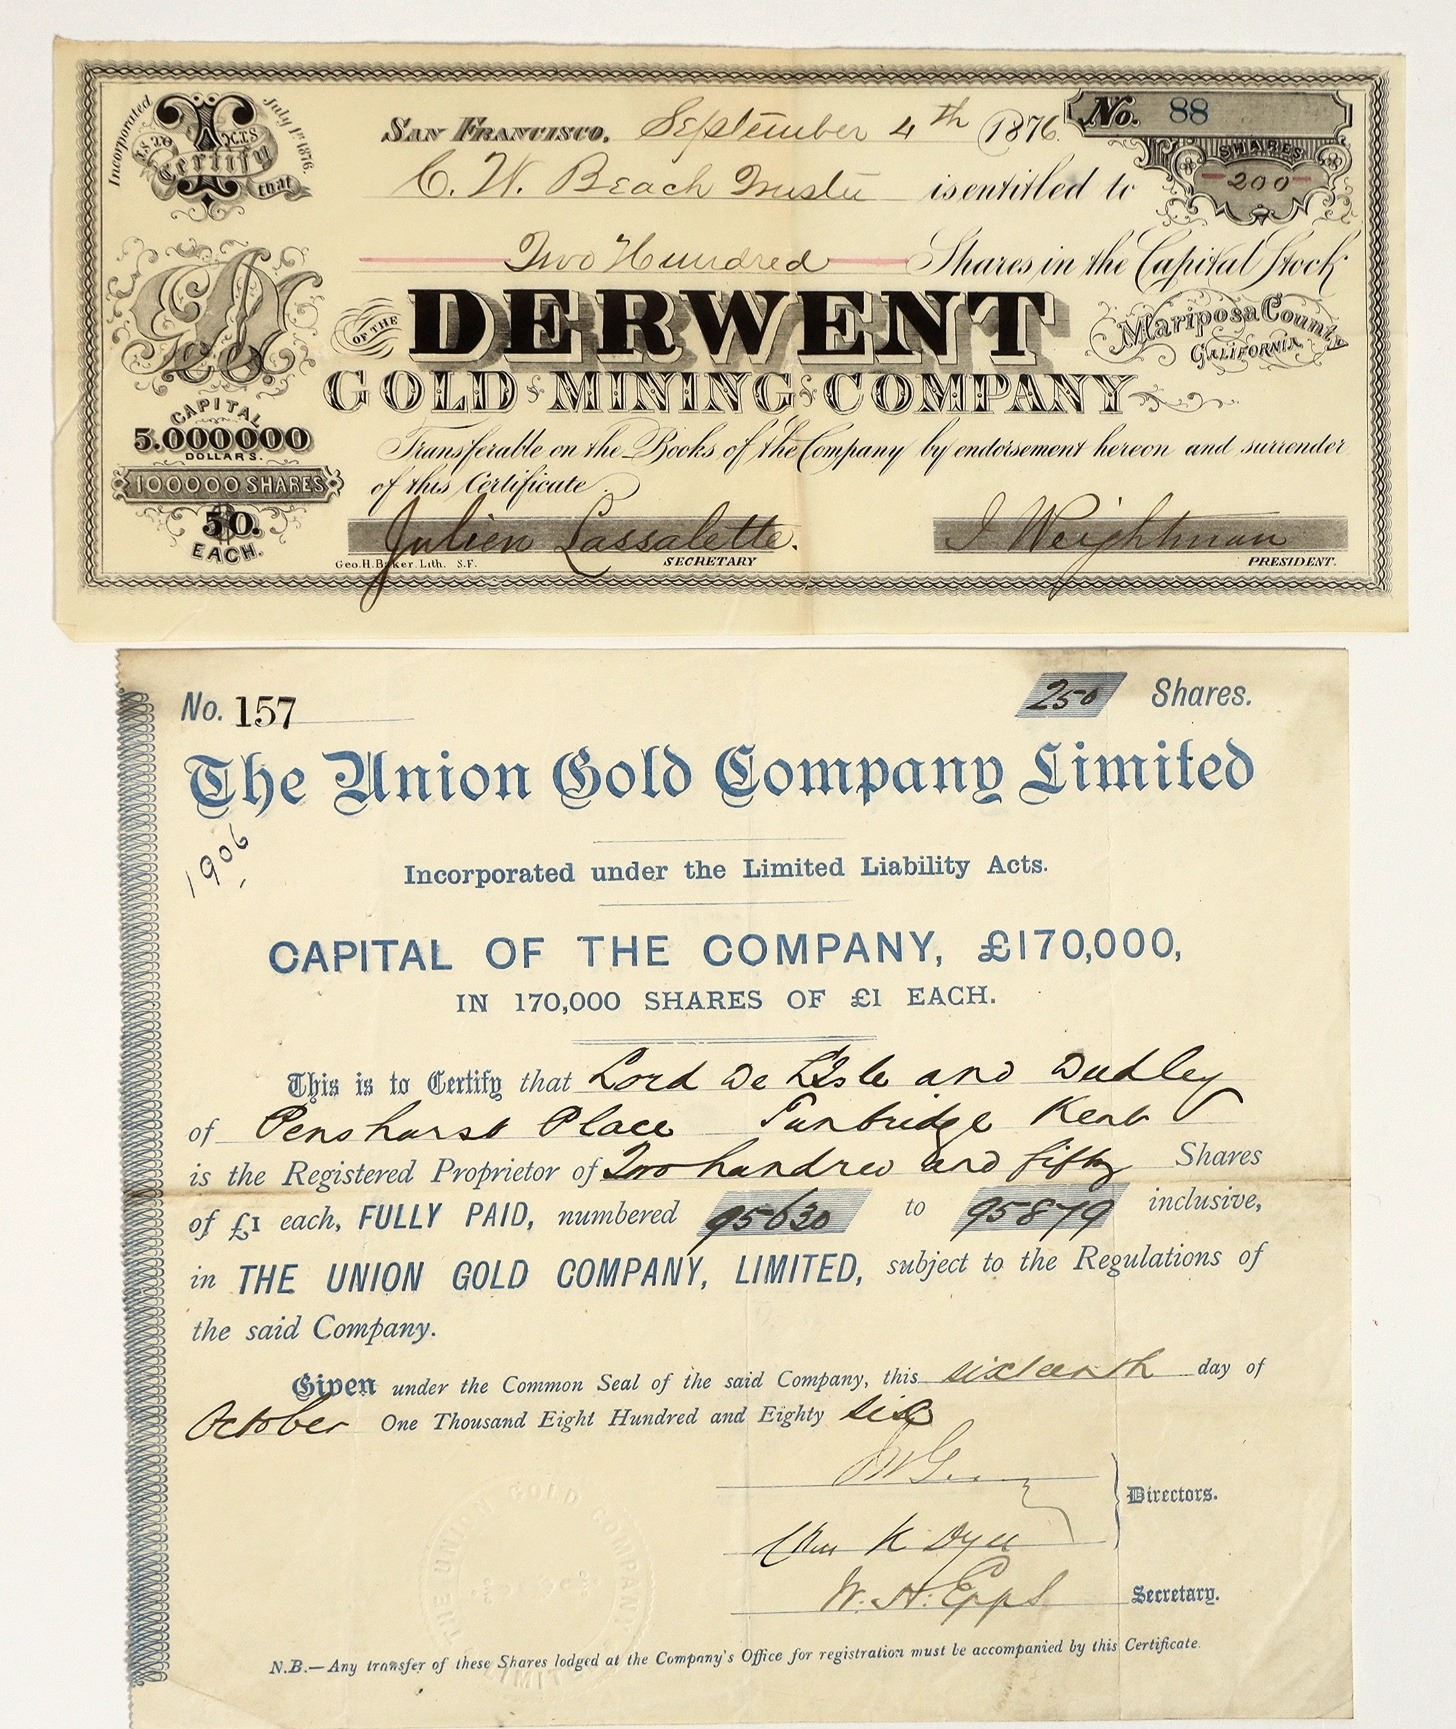 Incorporated July 1st 1876.
This Certify that
SAN FRANCISCO, September 4th 1876
No. 88
C. W. Beach Trustee is entitled to
SHARES
200
Two Hundred Shares in the Capital Stock
OF THE DERWENT
Mariposa County
CALIFORNIA
GOLD MINING COMPANY
CAPITAL
5.000000
DOLLARS.
100000 SHARES
50.
EACH.
Transferable on the Books of the Company by endorsement hereon and surrender
of this Certificate.
Julien Lassalette.
SECRETARY
I Weightman
PRESIDENT.
Geo. H. Baker. Lith. S.F.
No. 157
250 Shares.
The Union Gold Company Limited
1906
Incorporated under the Limited Liability Acts.
CAPITAL OF THE COMPANY, £170,000,
IN 170,000 SHARES OF £1 EACH.
This is to Certify that Lord De L'Isle and Dudley
of Penshurst Place Tunbridge Kent
is the Registered Proprietor of Two hundred and fifty Shares
of £1 each, FULLY PAID, numbered 95630 to 95879 inclusive,
in THE UNION GOLD COMPANY, LIMITED, subject to the Regulations of
the said Company.
Given under the Common Seal of the said Company, this sixteenth day of
October One Thousand Eight Hundred and Eighty six
Directors.
K Dyer
W. H. Epps
Secretary.
THE UNION GOLD COMPANY LIMITED
N.B.—Any transfer of these Shares lodged at the Company's Office for registration must be accompanied by this Certificate.